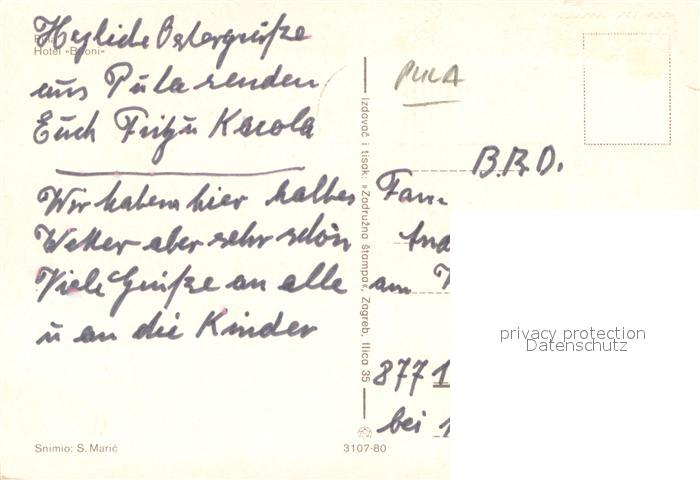 Herzliche Ostergrüße
Hotel »Brioni«
aus Pula senden
Euch Fritz u Karola
Wir haben hier kaltes
Wetter aber sehr schön
Viele Grüße an alle
u an die Kinder
Snimio: S. Marić
3107-80
Izdavač i tisak: »Zadružna štampa«, Zagreb, Ilica 35
PULA
B.R.D.
Fam
And
am
8771
bei
privacy protection
Datenschutz